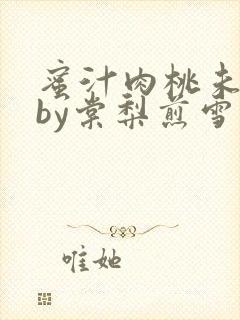 蜜汁肉桃未
by棠梨煎雪
唯她